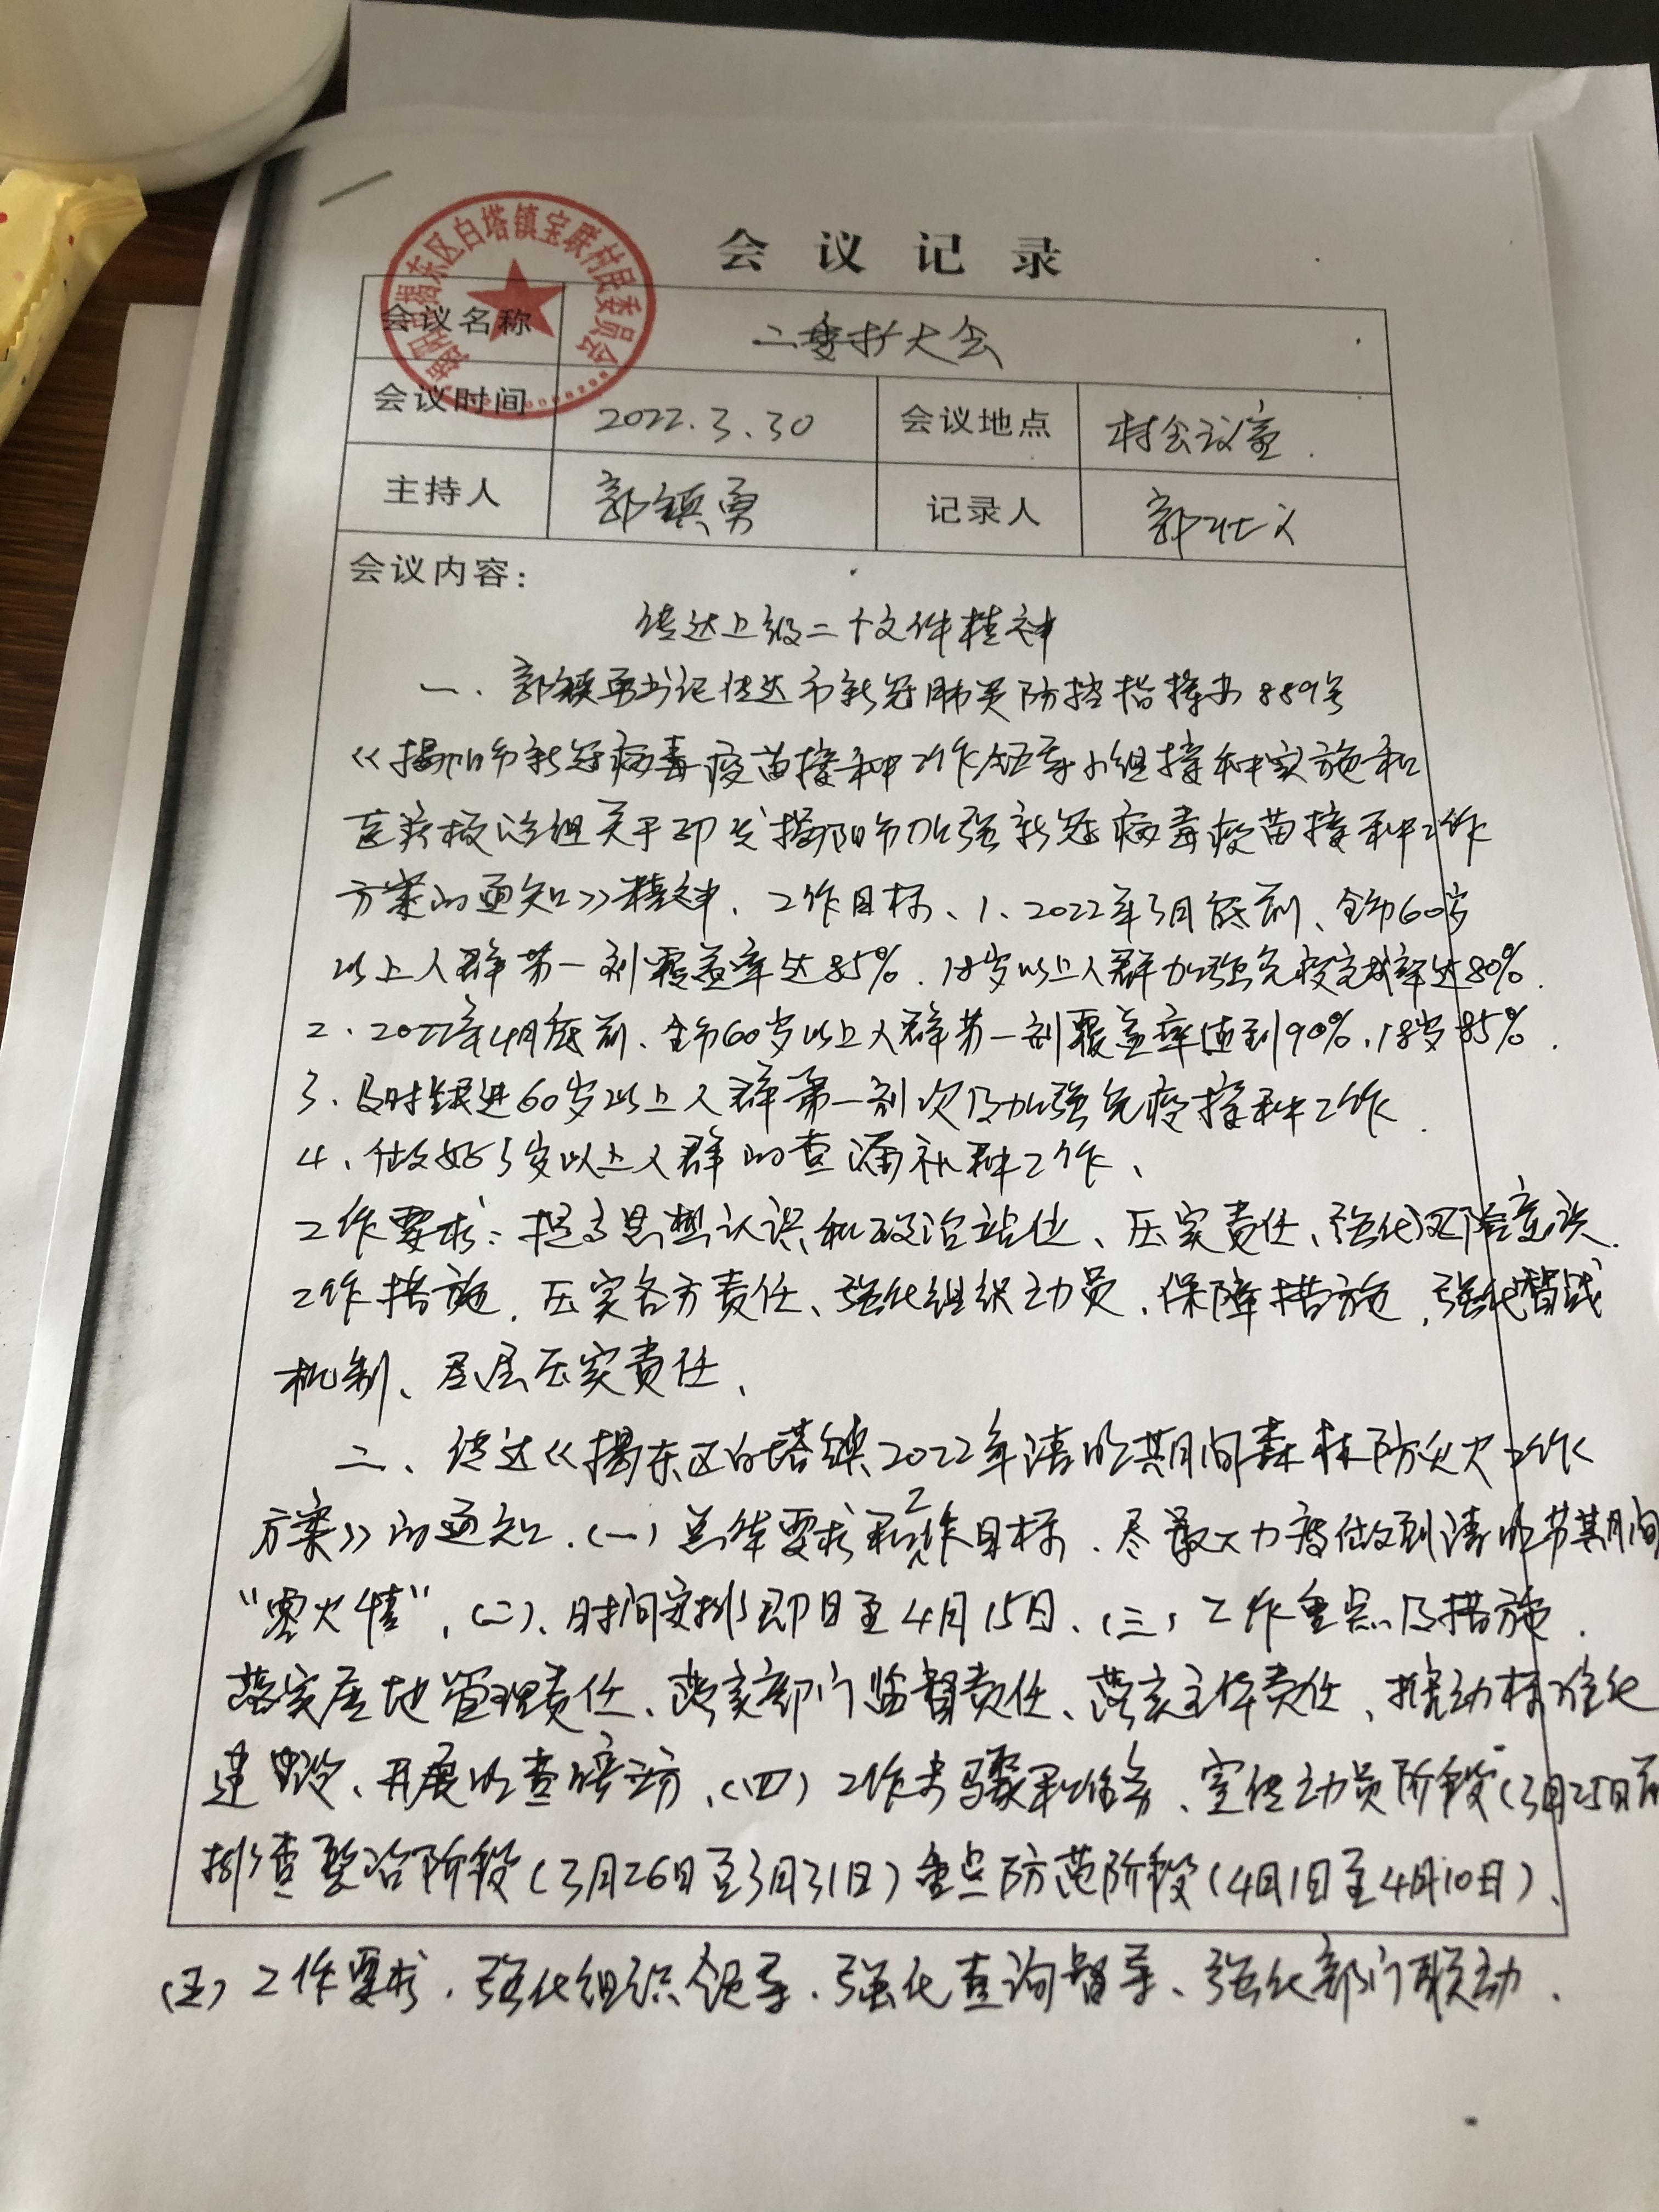 会议记录
揭阳市揭东区白塔镇宝联村民委员会
会议名称 二委扩大会
会议时间 2022.3.30 会议地点 村会议室.
主持人 郭镇勇 记录人 郭壮义
会议内容:
传达上级二个文件精神
一、郭镇勇书记传达市新冠肺炎防控指挥办889号
《揭阳市新冠病毒疫苗接种工作领导小组接种实施和
医疗救治组关于印发揭阳市加强新冠病毒疫苗接种工作
方案的通知》精神、工作目标、1、2022年3月底前、全市60岁
以上人群第一剂覆盖率达85%.18岁以上人群加强免疫完成率达80%.
2、2022年4月底前、全市60岁以上人群第一剂覆盖率达到90%.18岁85%.
3、及时跟进60岁以上人群第一剂次及加强免疫接种工作.
4、做好3岁以上人群的查漏补种工作、
工作要求:提高思想认识和政治站位、压实责任、强化风险意识.
工作措施.压实各方责任、强化组织动员.保障措施.强化督战
机制、层层压实责任、
二、传达《揭东区白塔镇2022年清明期间森林防灭火工作
方案》的通知.(一)总体要求和工作目标.尽最大力度做到清明节期间
"零火情",(二)、时间安排即日至4月15日、(三)工作重点及措施.
落实属地管理责任、落实部门监督责任、落实主体责任、推动标准化
建设、开展明查暗访、(四)工作步骤和任务、宣传动员阶段(3月25日前
排查整治阶段(3月26日至3月31日)重点防范阶段(4月1日至4月10日)、
(五)工作要求.强化组织领导.强化查询督导、强化部门联动.